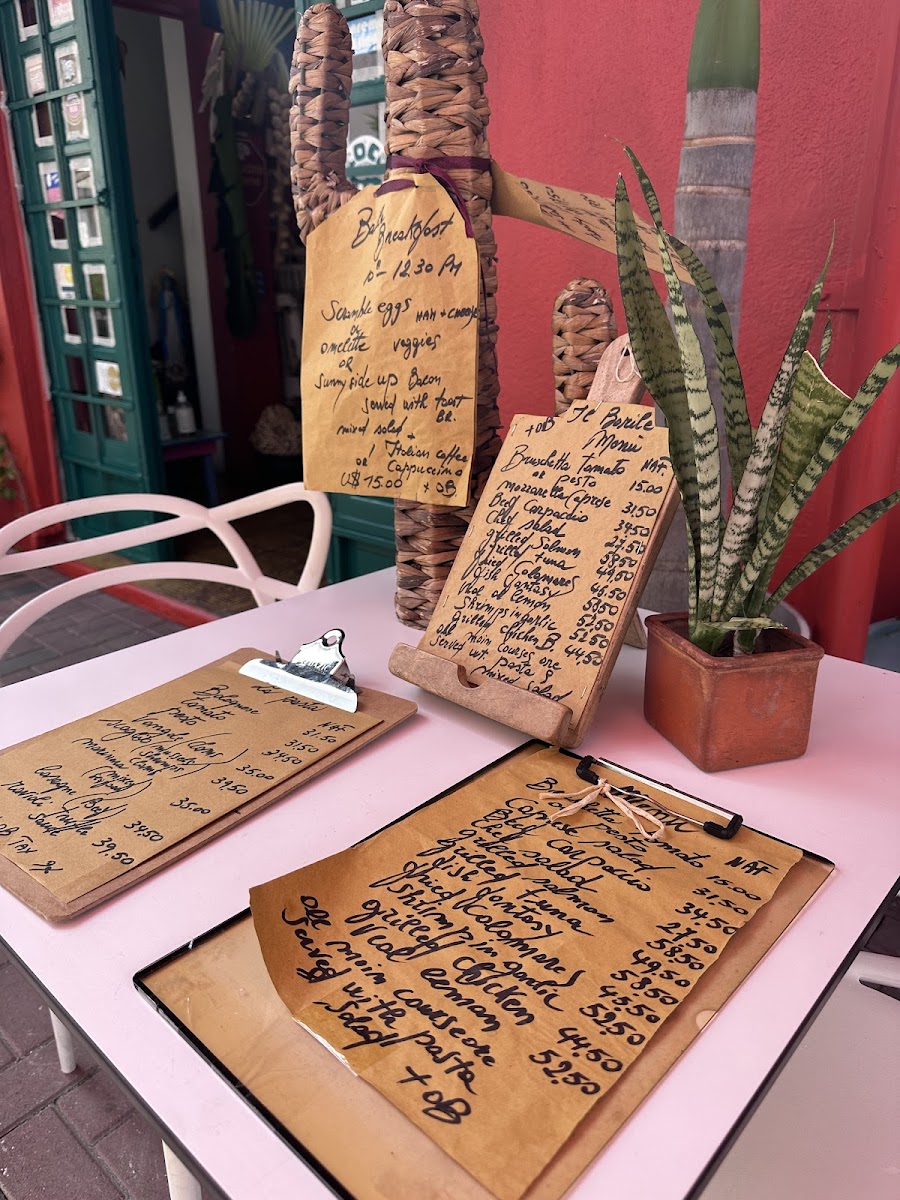 Breakfast
12.30 PM
Scramble eggs HAM + CHEESE
or
omelette veggies
or
sunny side up Bacon
served with toast
BR.
mixed salad +
Italian coffee
or Cappuccino
U$ 15.00 + OB
+ OB Il Barile
Menu
Bruschetta tomato NAF
or pesto 15.00
mozzarella Caprese 31.50
Beef Carpaccio 34.50
Chef salad 27.50
grilled Salmon 58.50
grilled Tuna 49.50
fried Calamares 45.50
fish fantasy 58.50
Veal al lemon 52.50
Shrimps in garlic 52.50
Grilled chicken B. 44.50
all main courses are
served wit pasta &
mixed salad
La pasta
NAF
Bolognese 31.50
tomato 31.50
pesto 27.50
Vongole (clams)
35.00
39.50
35.00
lasagne (Beef) 34.50
ravioli truffle
39.50
OB TAX %
NAF
Bruschetta tomato 15.00
Caprese salad 31.50
Beef Carpaccio 34.50
Chef salad 27.50
grilled salmon 58.50
grilled Tuna 49.50
fish fantasy 58.50
fried Kalamares 45.50
Shrimp in garlic 52.50
grilled chicken 44.50
Veal lemman 52.50
all main course are
served with pasta
salad
+ OB